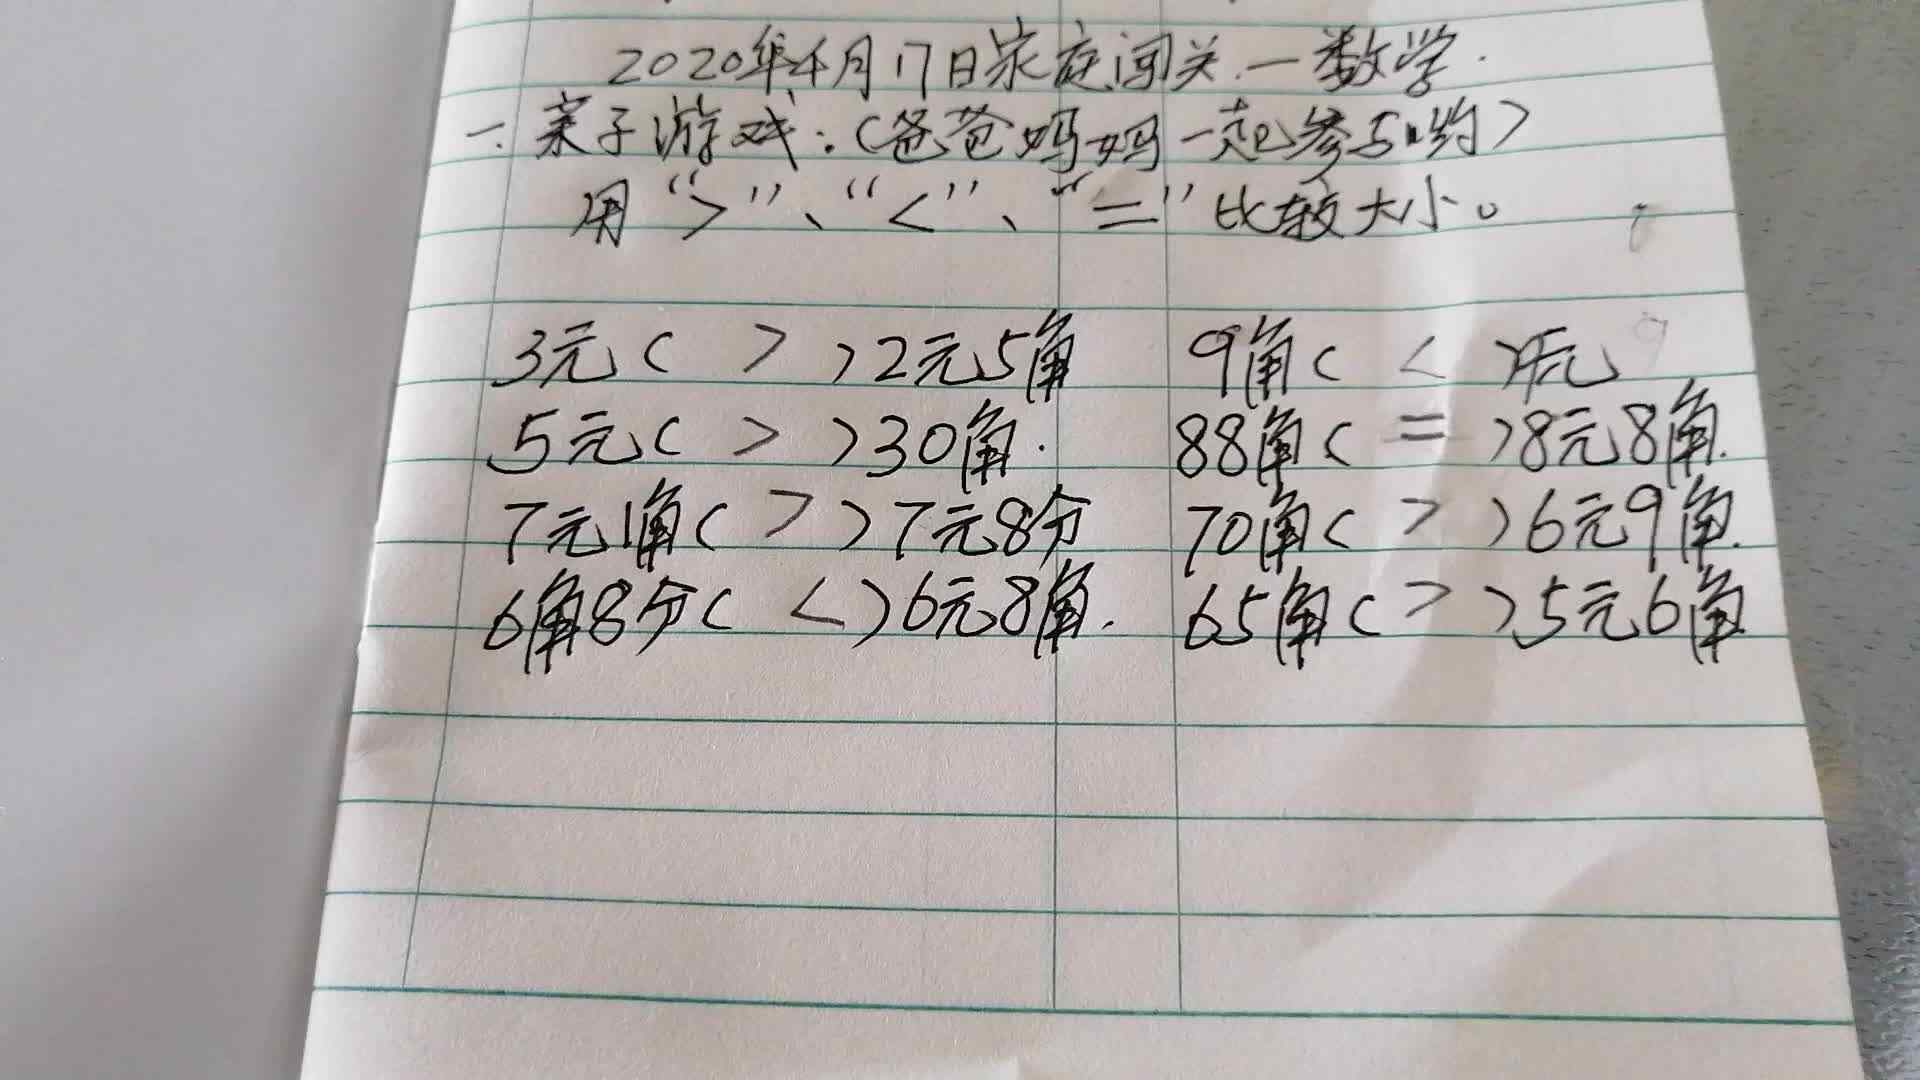 2020年4月17日家庭闯关一数学.
一.亲子游戏:(爸爸妈妈一起参与哟)
用“>”、“<”、“=”比较大小。
3元( > )2元5角 9角( < )1元
5元( > )30角. 88角( = )8元8角.
7元1角( > )7元8分 70角( > )6元9角.
6角8分( < )6元8角. 65角( > )5元6角